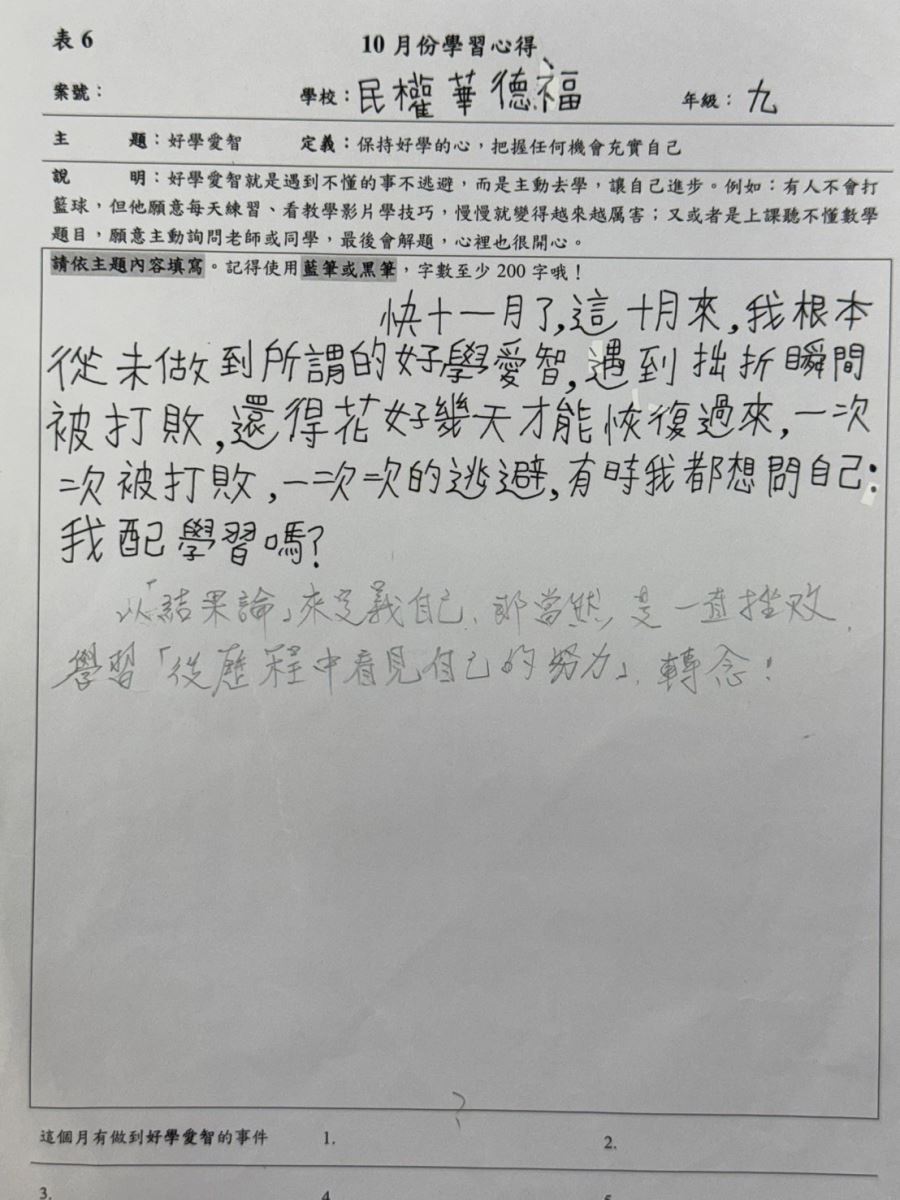 表 6
10 月份學習心得
案號：
學校：民權華德福
年級：九
主　題：好學愛智　定義：保持好學的心，把握任何機會充實自己
說　明：好學愛智就是遇到不懂的事不逃避，而是主動去學，讓自己進步。例如：有人不會打
籃球，但他願意每天練習、看教學影片學技巧，慢慢就變得越來越厲害；又或者是上課聽不懂數學
題目，願意主動詢問老師或同學，最後會解題，心裡也很開心。
請依主題內容填寫。記得使用藍筆或黑筆，字數至少 200 字哦！
快十一月了,這十月來,我根本
從未做到所謂的好學愛智,遇到拙折瞬間
被打敗,還得花好幾天才能恢復過來,一次
次被打敗,一次次的逃避,有時我都想問自己:
我配學習嗎?
以「結果論」來定義自己、那當然是一直挫敗.
學習「從歷程中看見自己的努力」、轉念!
?
這個月有做到好學愛智的事件　1.　2.
3.　4.　5.